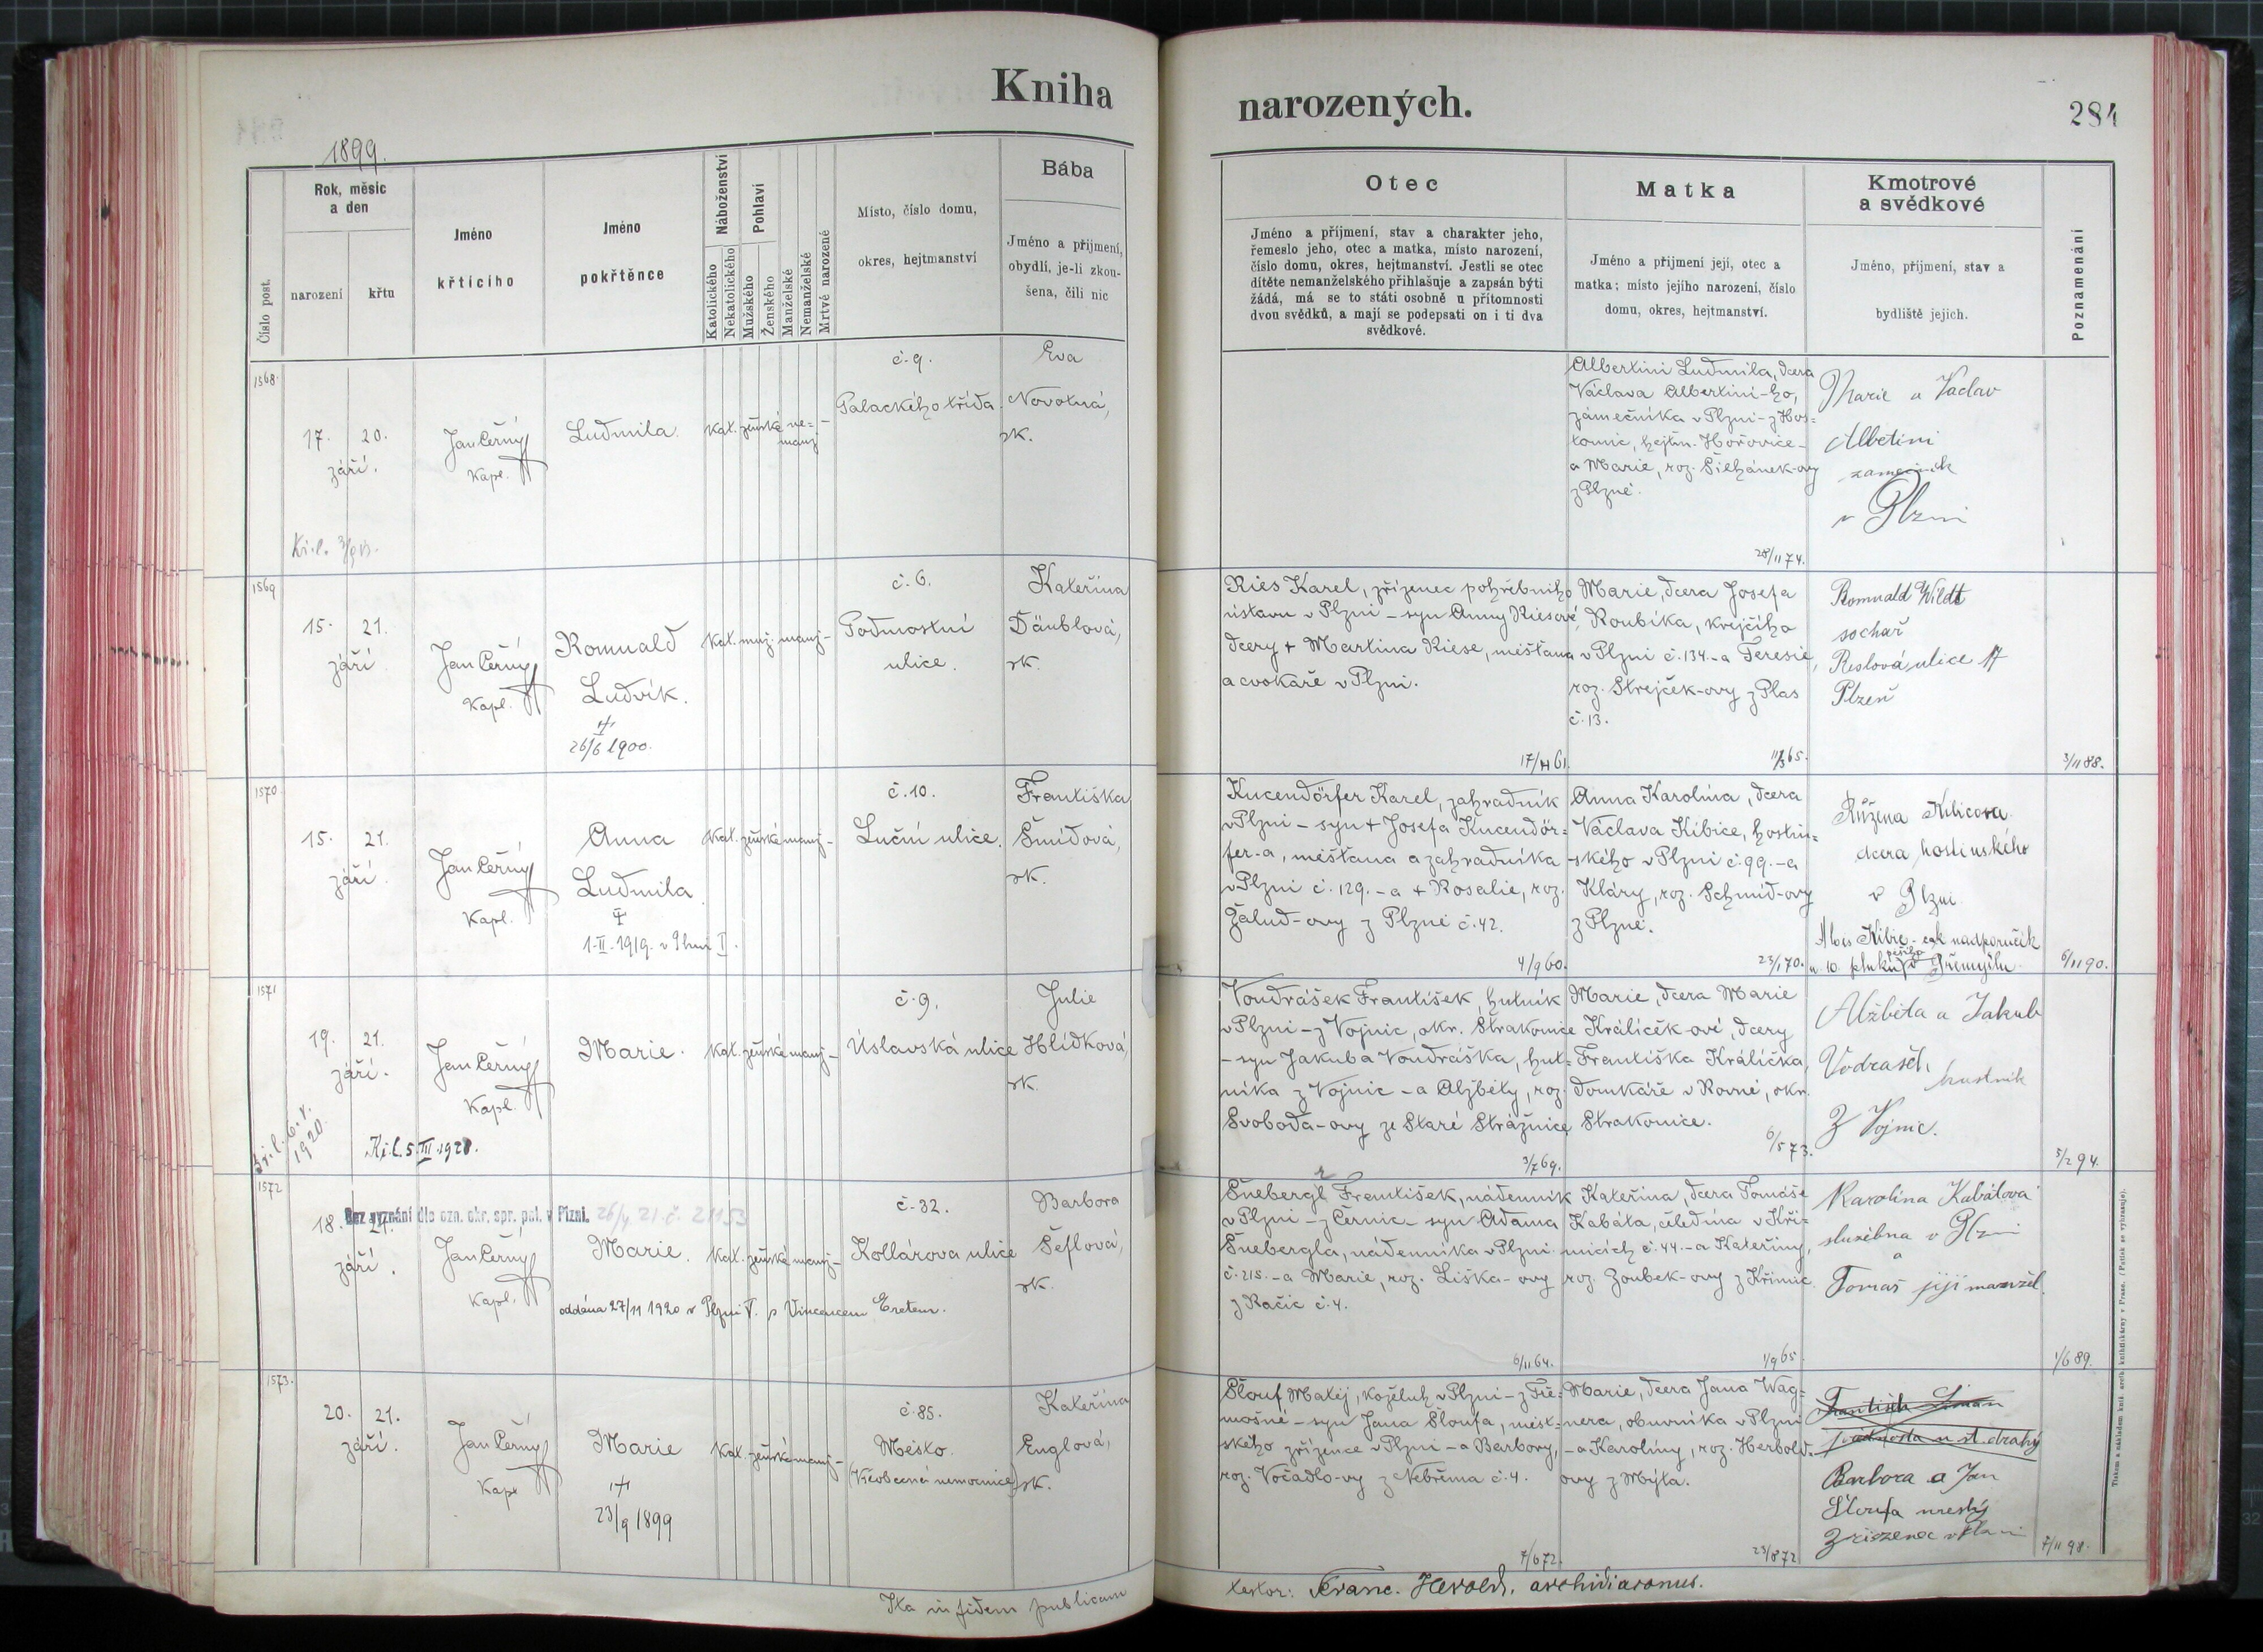 Kniha
narozených.
284
1899.
Číslo post.
Rok, měsíc
a den
narození
křtu
Jméno
křtícího
Jméno
pokřtěnce
Náboženství
Katolického
Nekatolického
Pohlaví
Mužského
Ženského
Manželské
Nemanželské
Mrtvě narozené
Místo, číslo domu,
okres, hejtmanství
Bába
Jméno a příjmení,
obydlí, je-li zkou-
šena, čili nic
Otec
Jméno a příjmení, stav a charakter jeho,
řemeslo jeho, otec a matka, místo narození,
číslo domu, okres, hejtmanství. Jestli se otec
dítěte nemanželského přihlašuje a zapsán býti
žádá, má se to státi osobně u přítomnosti
dvou svědků, a mají se podepsati on i ti dva
svědkové.
Matka
Jméno a příjmení její, otec a
matka; místo jejího narození, číslo
domu, okres, hejtmanství.
Kmotrové
a svědkové
Jméno, příjmení, stav a
bydliště jejich.
Poznamenání
1568.
17. 20.
září.
Jan Černý
Kapl.
Ludmila.
kat. ženské ne=
manž -
č. 9.
Palackého třída.
Eva
Novotná,
zk.
Albertini Ludmila, dcera
Václava Albertini-ho,
zámečníka v Plzni - z Hos=
tomic, hejtm. Hořovice -
a Marie, roz. Šilhánek-ovy
z Plzně.
28/11 74.
Marie a Vaclav
Albetini
zamečník
v Plzni
1569
15. 21.
září
Jan Černý
Kapl.
Romuald
Ludvík.
26/6 1900.
kat. muž. manž -
č. 6.
Podmostní
ulice.
Kateřina
Däublová,
zk.
Ries Karel, zřízenec pohřebního
ústavu v Plzni - syn Anny Riesové,
dcery + Martina Riese, měšťana
a cvokaře v Plzni.
17/11 61.
Marie, dcera Josefa
Roubíka, krejčího
v Plzni č. 134. - a Teresie,
roz. Strejček-ovy z Plas
č. 13.
11/3 65.
Romuald Wildt
sochař
Reslová ulice 17
Plzeň
3/11 88.
1570
15. 21.
září.
Jan Černý
Kapl.
Anna
Ludmila
1-II-1919. v Plzni I.
kat. ženské manž -
č. 10.
Luční ulice.
Františka
Šmídová,
zk.
Kucendörfer Karel, zahradník
v Plzni - syn + Josefa Kucendör=
fer-a, měšťana a zahradníka
v Plzni č. 129. - a + Rosalie, roz.
Žalud-ovy z Plzně č. 42.
4/9 60.
Anna Karolina, dcera
Václava Kibice, hostin=
ského v Plzni č. 99. - a
Kláry, roz. Schmid-ovy
z Plzně.
23/1 70.
Růžena Kibicova
dcera hostinského
v Plzni
Alois Kibic - c.k. nadporučík
u 10. pluku pěšího v Přemyšlu.
6/11 90.
1571
19. 21.
září.
Jan Černý
Kapl.
Marie.
kat. ženské manž -
č. 9.
Úslavská ulice
Julie
Hlídková,
zk.
1920.
Kř. l. 5. III. 1921.
Voudrášek František, hutník
v Plzni - z Vojnic, okr. Strakonice
- syn Jakuba Voudráška, hut=
níka z Vojnic - a Alžběty, roz.
Svoboda-ovy ze Staré Strážnice
3/7 69.
Marie, dcera Marie
Králíček-ové, dcery
Františka Králíčka,
domkáře v Rovné, okr.
Strakonice.
6/5 73.
Alžběta a Jakub
Z Vojnic.
5/2 94.
1572
18. 21.
září.
Bez vyznání dle ozn. okr. spr. pol. v Plzni. 26/4 21. č. 21153
Jan Černý
Kapl.
Marie.
kat. ženské manž -
č. 32.
Kollárova ulice
Barbora
Šeflová,
zk.
oddána 27/11 1920 v Plzni V. s Vincencem Eretem.
Šnebergl František, nádenník
v Plzni - z Černic - syn Adama
Šnebergla, nádenníka v Plzni
č. 215. - a Marie, roz. Liška-ovy
z Račic č. 4.
6/11 64.
Kateřina, dcera Tomáše
Kabáta, čeledína v Kři=
micích č. 44. - a Kateřiny,
roz. Zoubek-ovy z Křimic.
1/9 65.
Karolina Kabátová
služebna v Plzni
a
Tomaš jiji manžel.
1/6 89.
1573.
20. 21.
září.
Jan Černý
Kapl
Marie
23/9 1899
kat. ženské manž -
č. 85.
Město.
(Všeobecná nemocnice)
Kateřina
Englová,
zk.
Šlouf Matěj, koželuh v Plzni - z Tře=
mošné - syn Jana Šloufa, měst=
ského zřízence v Plzni - a Barbory,
roz. Vočadlo-vy z Nebřema č. 4.
7/6 72.
Marie, dcera Jana Wag=
nera, obuvníka v Plzni
- a Karolíny, roz. Herbold-
ovy z Mýta.
23/8 72
Barbora a Jan
Šloufa
7/11 98.
Ita in fidem publicam
testor: Franc. Herold, archidiaconus.